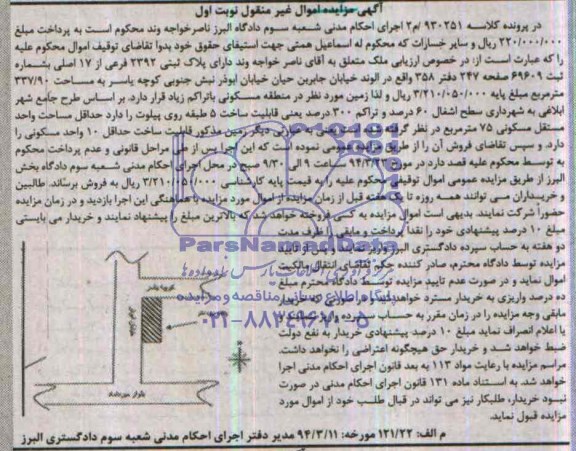 آگهی مزایده اموال غیر منقول نوبت اول
در پرونده کلاسه ۹۳۰۲۵۱ /م۲ اجرای احکام مدنی شعبه سوم دادگاه البرز ناصرخواجه وند محکوم است به پرداخت مبلغ
۲۲۰/۰۰۰/۰۰۰ ریال و سایر خسارات که محکوم له اسماعیل همتی جهت استیفای حقوق خود بدوا تقاضای توقیف اموال محکوم علیه
را که عبارت است از: در خصوص ارزیابی ملک متعلق به آقای ناصر خواجه وند دارای پلاک ثبتی ۲۳۹۲ فرعی از ۱۷ اصلی بشماره
ثبت ۶۹۶۰۹ صفحه ۲۴۷ دفتر ۳۵۸ واقع در الوند خیابان جابرین حیان خیابان ابوذر نبش جنوبی کوچه یاسر به مساحت ۳۳۷/۹۰
مترمربع مبلغ پایه ۳/۲۱۰/۰۵۰/۰۰۰ ریال و لذا زمین مورد نظر در منطقه مسکونی باتراکم زیاد قرار دارد. بر اساس طرح جامع شهر
ابلاغی به شهرداری سطح اشغال ۶۰ درصد و تراکم ۳۰۰ درصد یعنی قابلیت ساخت ۵ طبقه روی پیلوت را دارد حداقل مساحت واحد
مستقل مسکونی ۷۵ مترمربع در نظر گرفته شده است یعنی به عبارتی دیگر زمین مذکور قابلیت ساخت حداقل ۱۰ واحد مسکونی را
دارد. و سپس تقاضای فروش آن را از طریق مزایده عمومی نموده است که این اجرا پس از طی مراحل قانونی و عدم پرداخت محکوم
به توسط محکوم علیه قصد دارد در مورخ ۹۴/۳/۲۳ ساعت ۹ الی ۹/۳۰ صبح در محل اجرای احکام مدنی شعبه سوم دادگاه بخش
البرز از طریق مزایده عمومی اموال توقیفی محکوم علیه را به قیمت پایه کارشناسی ۳/۲۱۰/۰۵۰/۰۰۰ ریال به فروش برساند. طالبین
و خریداران می توانند همه روزه تا یک هفته قبل از زمان مزایده از اموال مورد مزایده با هماهنگی این اجرا بازدید و در زمان مزایده
حضوراً شرکت نمایند. بدیهی است اموال مزایده به کسی فروخته خواهد شد که بالاترین مبلغ را پیشنهاد نمایند و خریدار می بایستی
مبلغ ۱۰ درصد پیشنهادی خود را نقداً پرداخت و مابقی را ظرف مدت
دو هفته به حساب سپرده دادگستری البرز واریز نمایند و پس از تایید
مزایده توسط دادگاه محترم، صادر کننده حکم تقاضای انتقال مالکیت
اموال نماید و در صورت عدم تایید مزایده توسط دادگاه محترم مبلغ
ده درصد واریزی به خریدار مسترد خواهد شد و در صورتی که خریدار
مابقی وجه مزایده را در زمان مقرر به حساب سپرده واریز ننماید و
یا اعلام انصراف نماید مبلغ ۱۰ درصد پیشنهادی خریدار به نفع دولت
ضبط خواهد شد و خریدار حق هیچگونه اعتراضی را نخواهد داشت.
مراسم مزایده با رعایت مواد ۱۱۳ به بعد قانون اجرای احکام مدنی اجرا
خواهد شد. به استناد ماده ۱۳۱ قانون اجرای احکام مدنی در صورت
نبود خریدار، طلبکار نیز می تواند در قبال طلب خود از اموال مورد
مزایده قبول نماید.
کوچه یاسر
خیابان ابوذر
بلوار میرداماد
ParsNamadData
پایگاه اطلاع رسانی مناقصه و مزایده
۰۲۱-۸۸۳۴۹۶۷۰-۵
م الف: ۱۲۱/۲۲ مورخه: ۹۴/۳/۱۱ مدیر دفتر اجرای احکام مدنی شعبه سوم دادگستری البرز